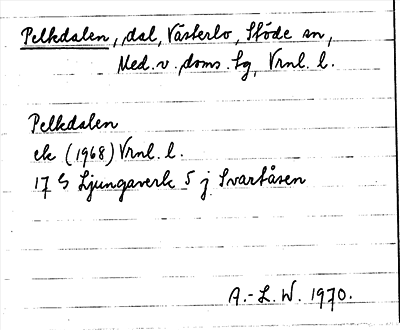 Pelkdalen, dal, Västerlo, Stöde sn,
Med. v. doms. tg, Vrnl. l.
Pelkdalen
ek (1968) Vrnl. l.
17 G Ljungaverk 5 j Svartåsen
A.-L. W. 1970.